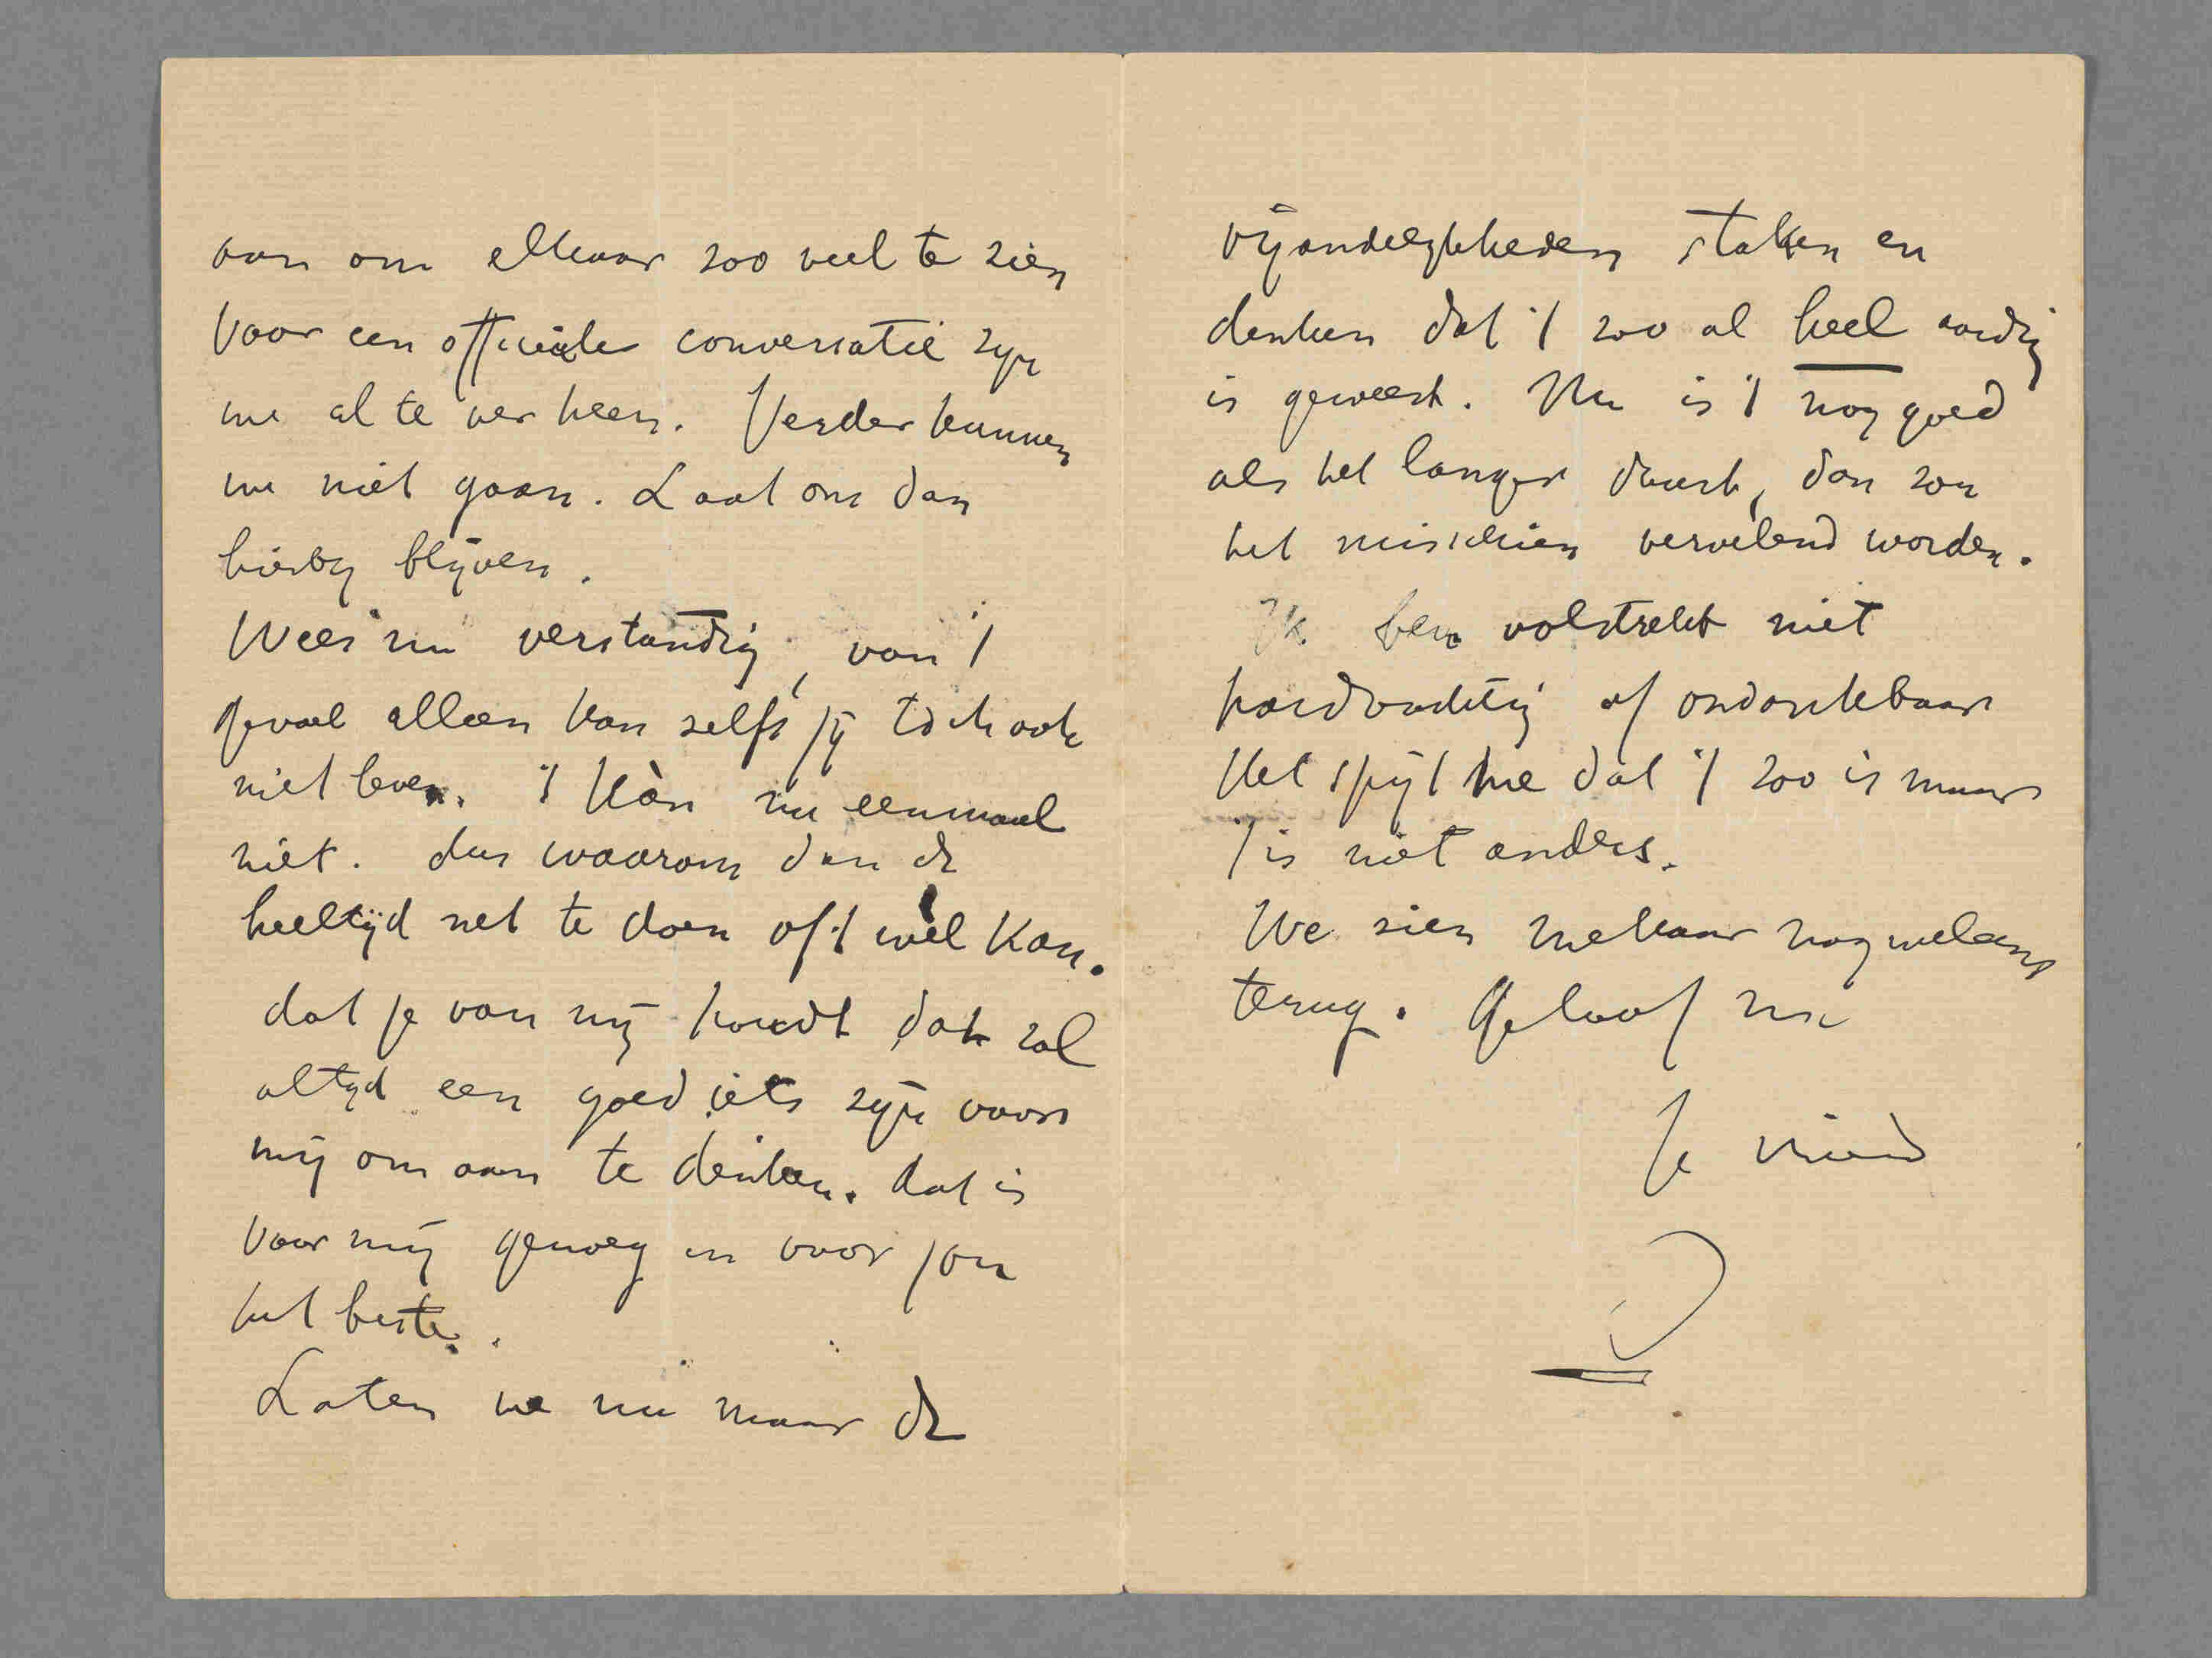 aan om elkaar zoo veel te zien
Voor een officieele conversatie zijn
we al te ver heen. Verder kunnen
we niet gaan. Laat ons dan
hierbij blijven.
Wees nu verstandig, van 't
gevoel alleen kan zelfs jij toch ook
niet leven. 't Kàn nu eenmaal
niet. dus waarom dan de
heeltijd net te doen of 't wèl Kan.
dat je van mij houdt dat zal
altijd een goed iets zijn voor
mij om aan te denken. dat is
voor mij genoeg en voor jou
het beste.
Laten we nu maar de
vijandelijkheden staken en
denken dat 't zoo al heel aardig
is geweest. Nu is 't nog goed
als het langer duurt, dan zou
het misschien vervelend worden.
Ik ben volstrekt niet
hardvochtig of ondankbaar
Het spijt me dat 't zoo is maar
't is niet anders.
We zien mekaar nog weleens
terug. Geloof me
Je vriend